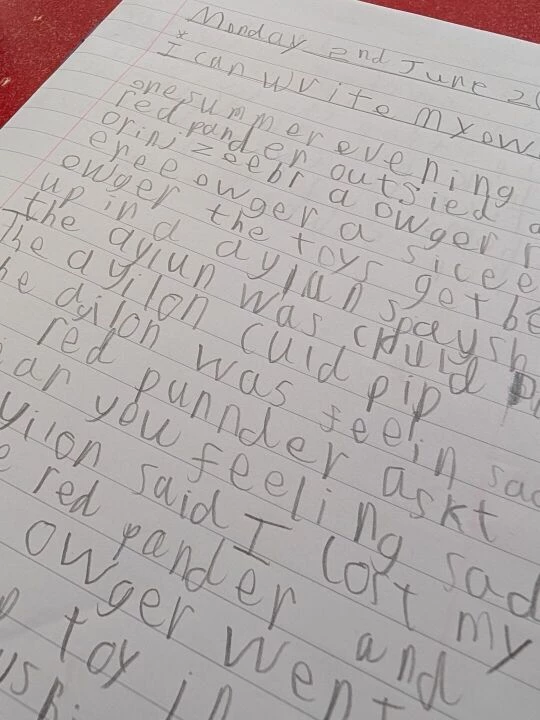 Monday 2nd June 2
I can write my ow
one summer evening
red pander outsied a
orinj zeebr a owger r
eree owger a sicee
owger the toys got be
up in a aylan spaysh
the aylun was cald
The ayilon culd pip
he ailon was feelin sad
red punnder askt
ar you feeling sad
yilon said I lost my
e red pander and
owger went
toy in
ush